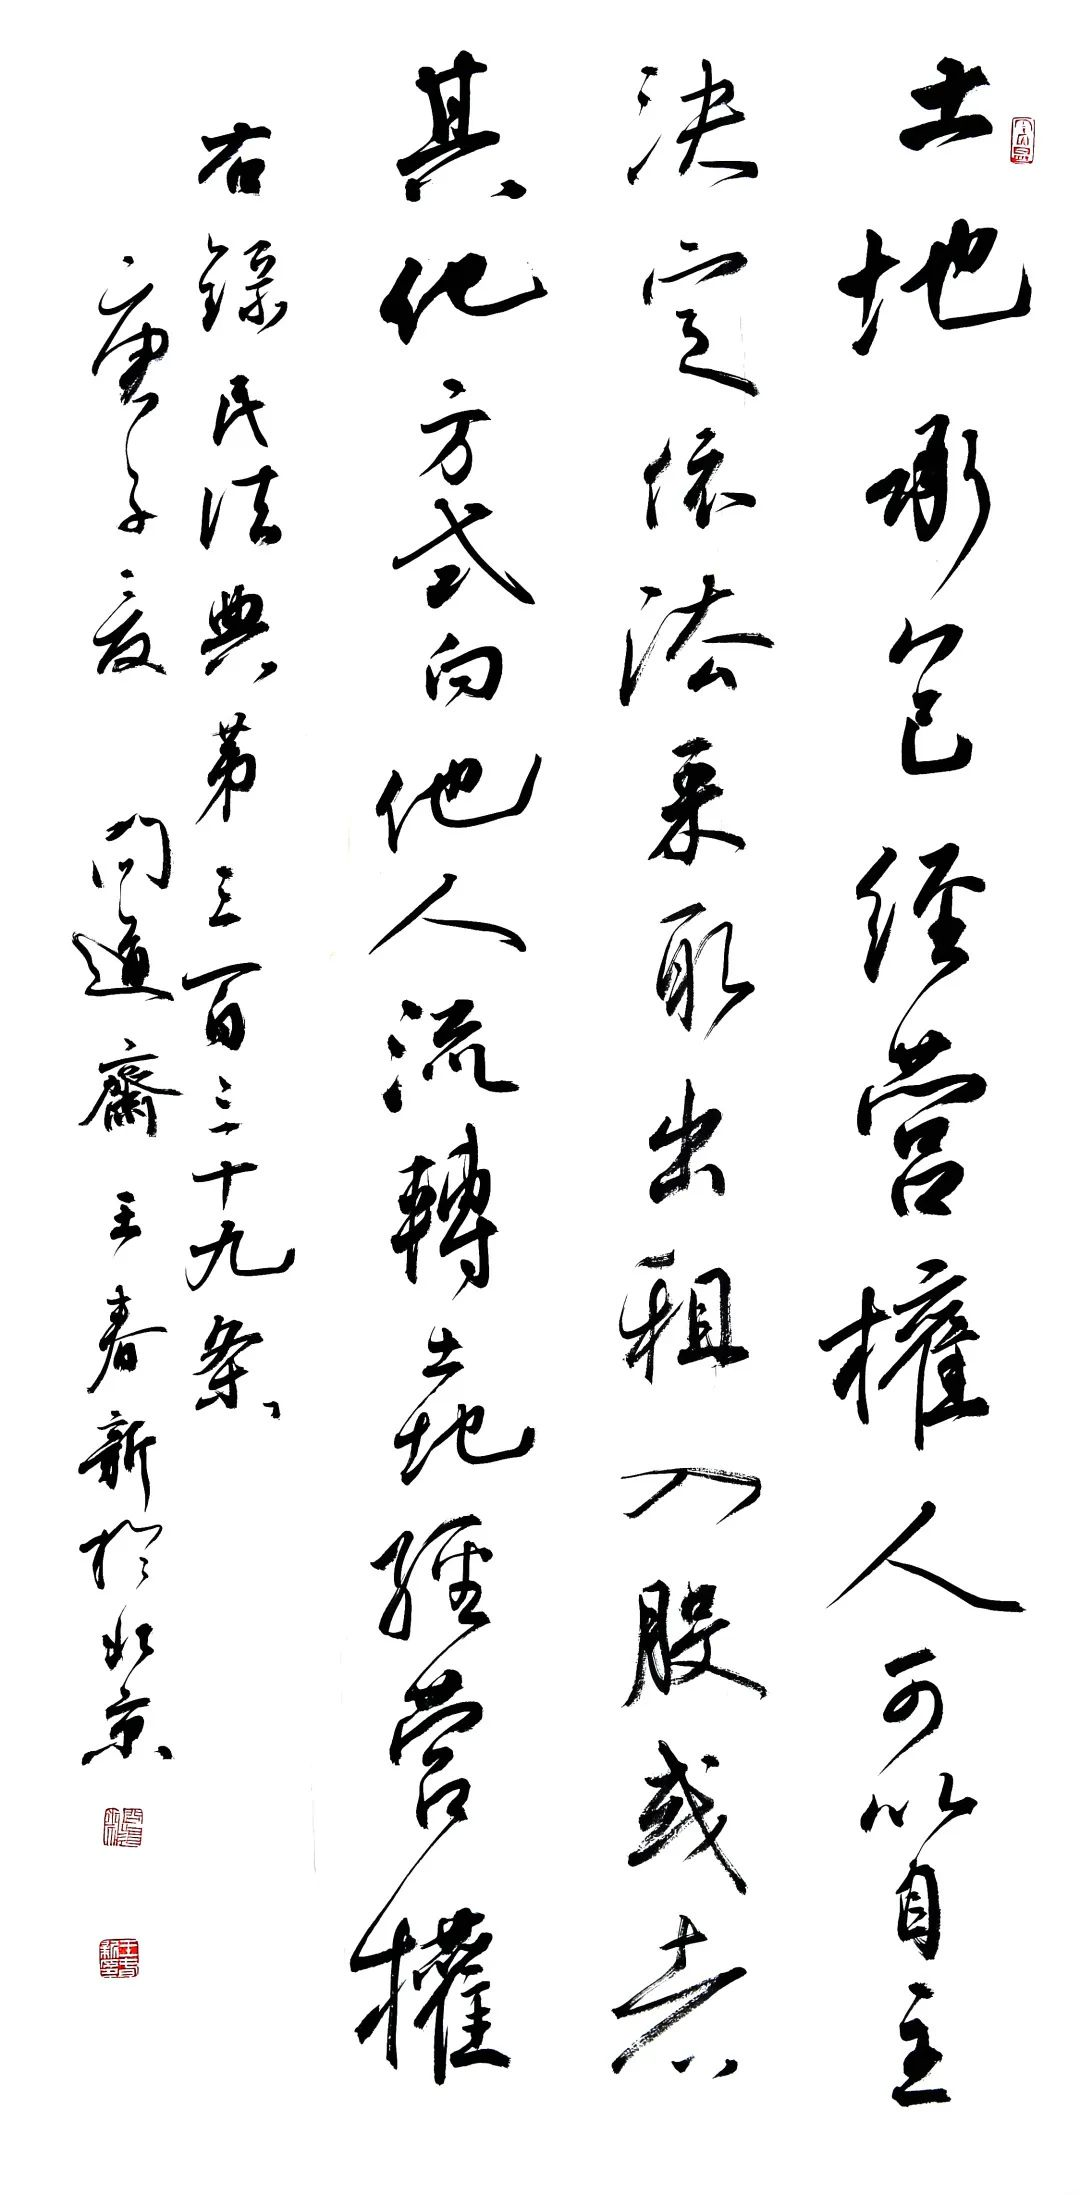 土地承包經營權人可以自主
決定依法采取出租入股或者
其他方式向他人流轉土地經營權
右錄民法典第三百三十九条
庚子夏 問道齋 王春新於北京